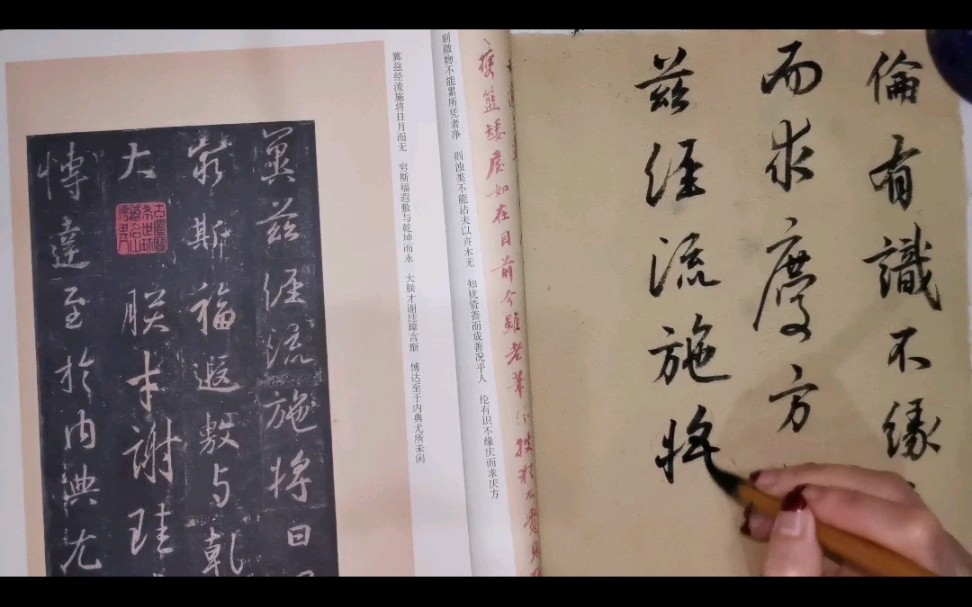 倫有識不緣
而求慶方
茲經流施將
矮屋如在目前今雖老
则微物不能累所凭者净 则浊类不能沾夫以卉木无 知犹资善而成善况乎人 伦有识不缘庆而求庆方
冀兹经流施将日月而无 穷斯福遐敷与乾坤而永 大朕才谢珪璋言惭 博达至于内典尤所未闲
冀茲經流施將日
窮斯福遐敷与乾
大朕才謝珪
博達至於內典尤